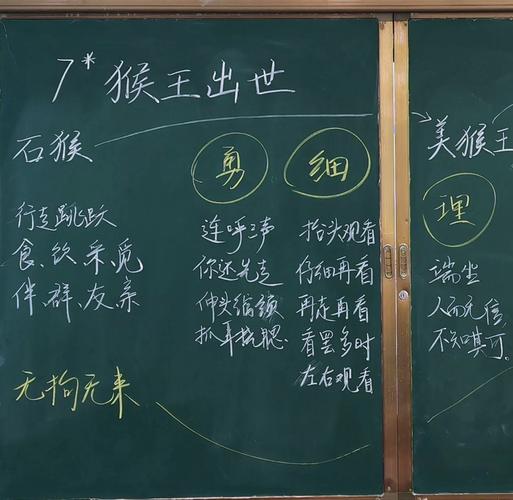 7* 猴王出世
石猴
勇
细
美猴王
理
行走跳跃
食、饮、采、觅
伴、群、友、亲
无拘无束
连呼三声
你还先走
伸头缩颈
抓耳挠腮
抬头观看
仔细再看
再走再看
看罢多时
左右观看
端坐
人而无信,
不知其可。